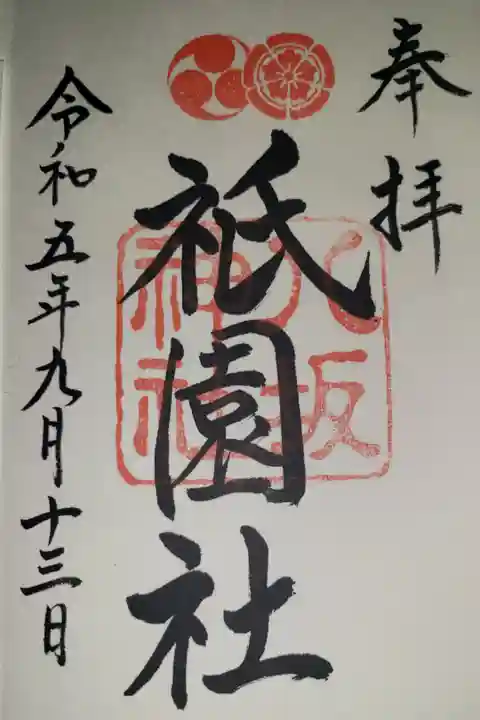 奉拝
祇園社
八坂神社
令和五年九月十三日